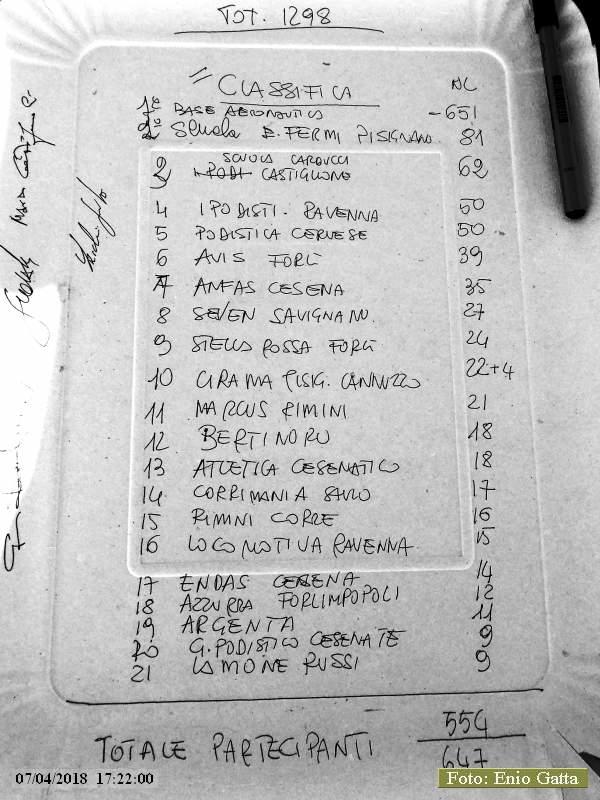 TOT. 1298
CLASSIFICA NC
1º BASE AERONAUTICA - 651
2º SCUOLA E. FERMI PISIGNANO 81
SCUOLA CARDUCCI
CASTIGLIONE 62
4 IPODISTI. RAVENNA 50
5 PODISTICA CERVESE 50
6 AVIS FORLÌ 39
7 ANFAS CESENA 35
8 SEVEN SAVIGNANO. 27
9 STELLA ROSSA FORLÌ 24
10 PISIG. CANNUZZO 22+4
11 MARCUS RIMINI 21
12 BERTINORO 18
13 ATLETICA CESENATICO 18
14 CORRIMANIA SAVIO 17
15 RIMINI CORRE 16
16 LOCOMOTIVA RAVENNA 15
17 ENDAS CESENA 14
18 AZZURRA FORLIMPOPOLI 12
19 ARGENTA 11
20 G. PODISTICO CESENATE 9
21 LAMONE RUSSI 9
554
TOTALE PARTECIPANTI 647
07/04/2018 17:22:00
Foto: Enio Gatta